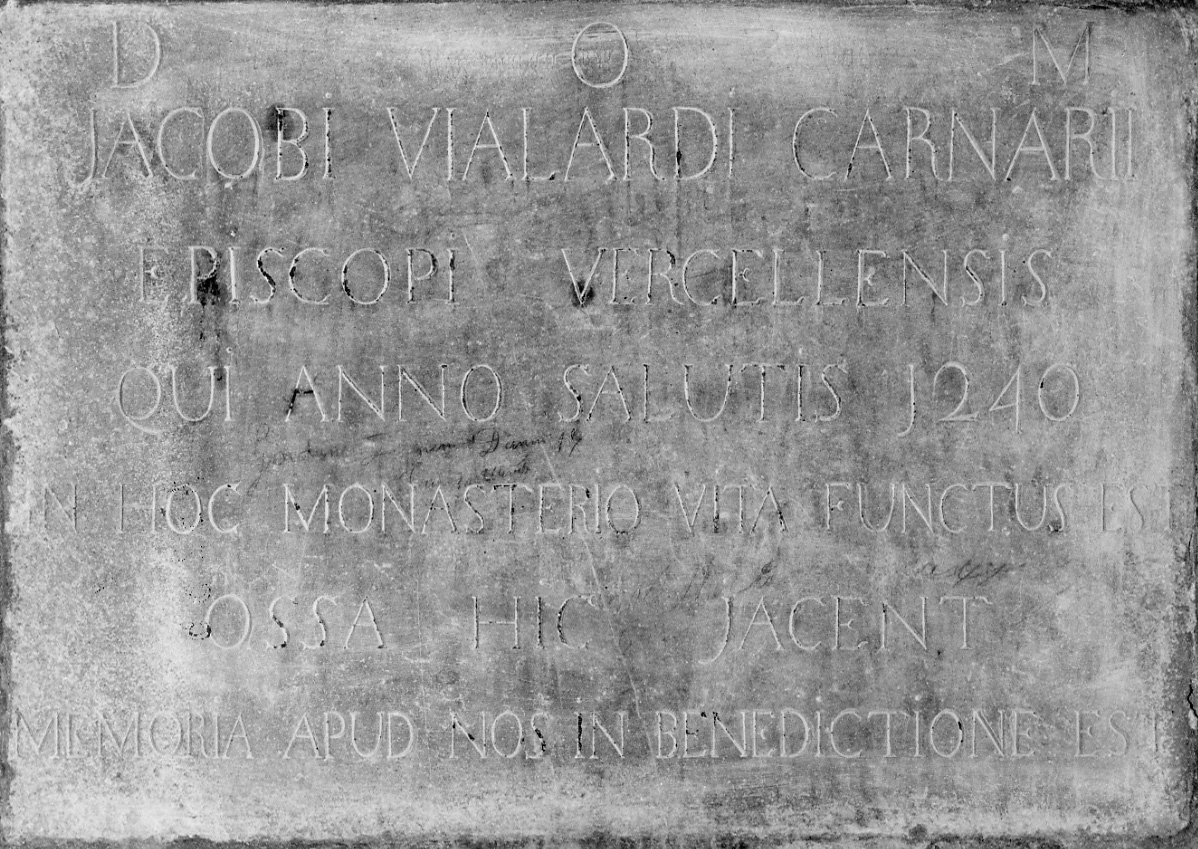 D O M
JACOBI VIALARDI CARNARII
EPISCOPI VERCELLENSIS
QUI ANNO SALUTIS J240
IN HOC MONASTERIO VITA FUNCTUS EST
OSSA HIC JACENT
MEMORIA APUD NOS IN BENEDICTIONE EST